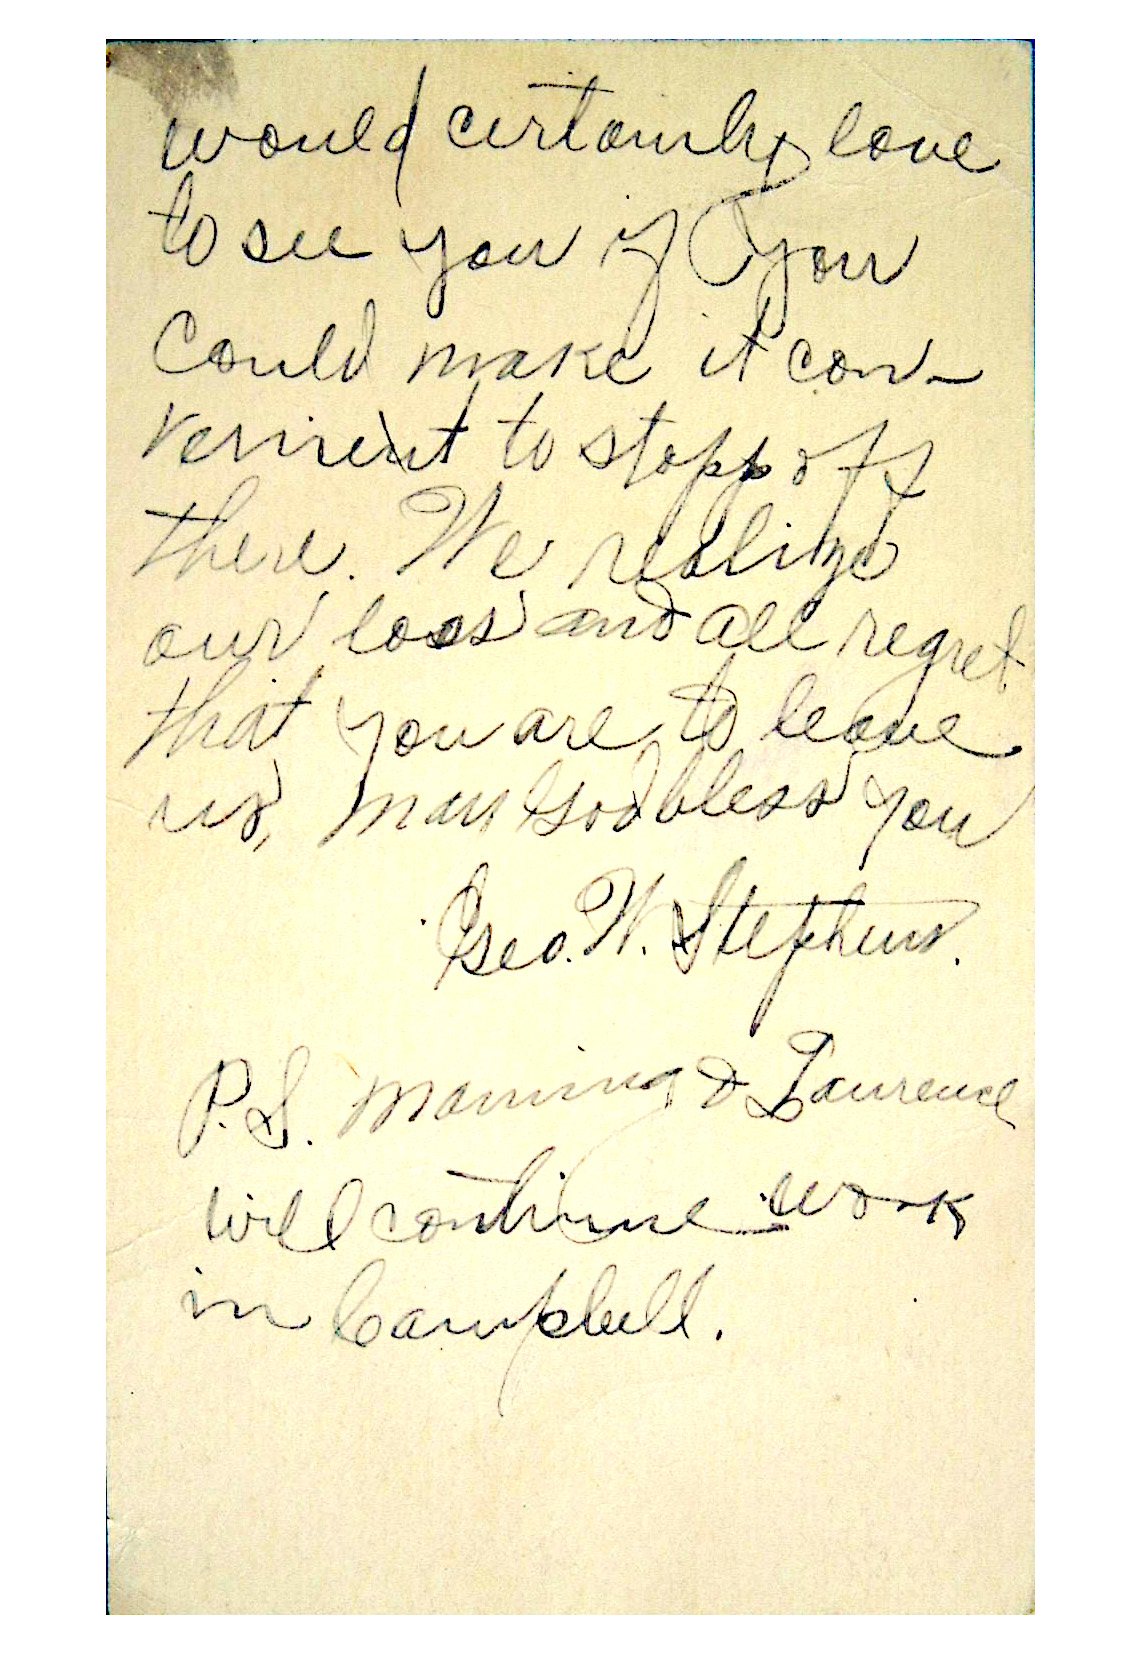 would certainly love
to see you if you
could make it con-
venient to stopp off
there. We realize
our loss and all regret
that you are to leave
us, may God bless you
Geo. W. Stephens.
P.S. Manning & Laurence
will continue work
in Campbell.